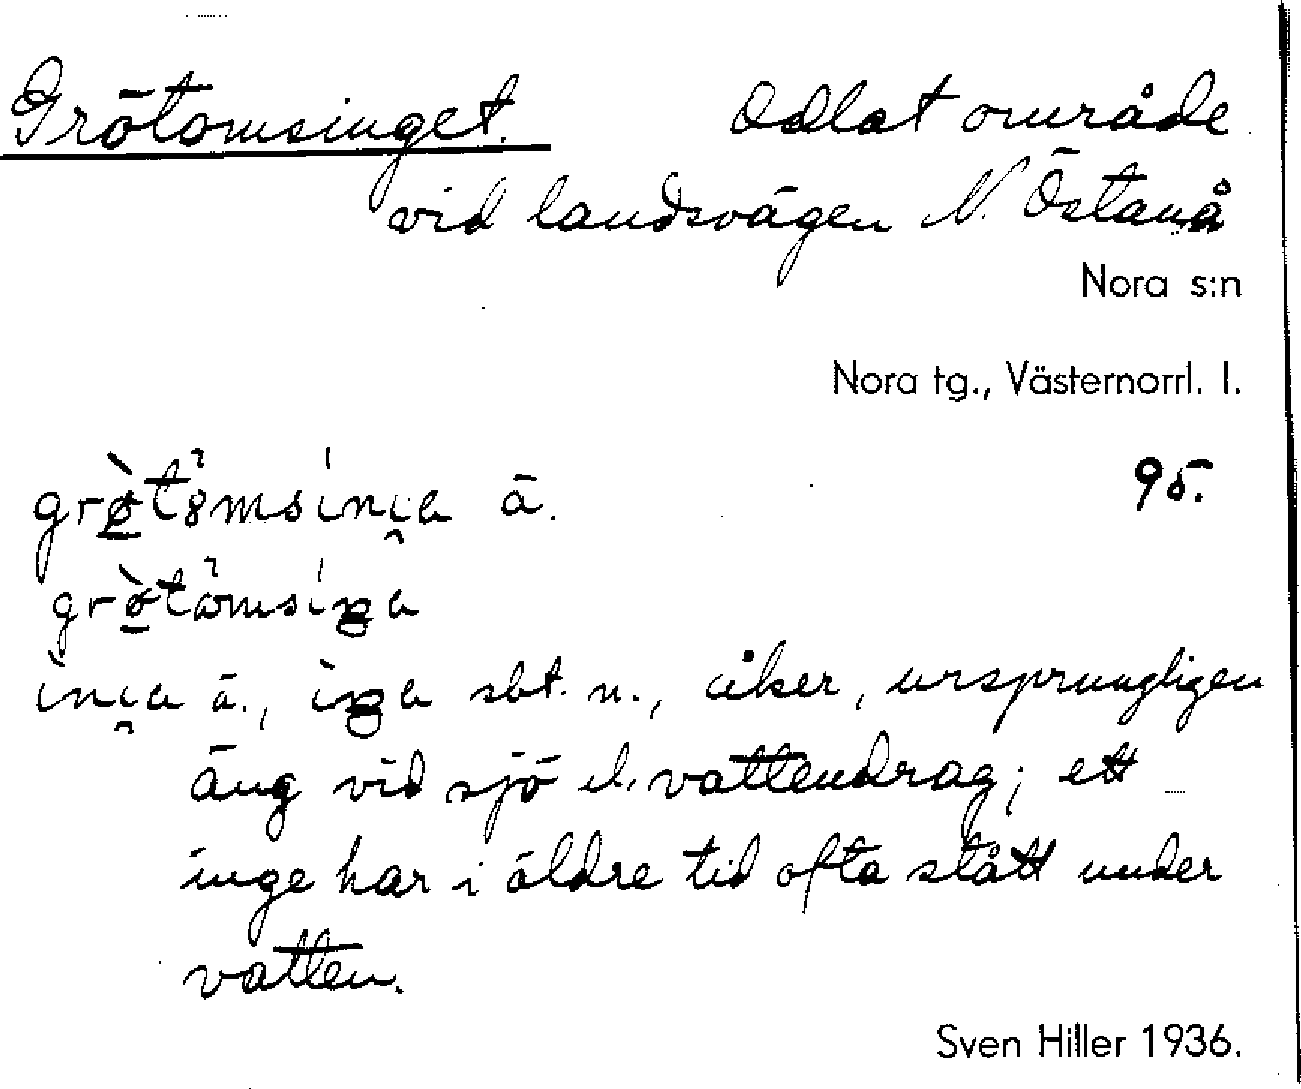 Grötomsinget. Odlat område
vid landsvägen N. Östanå
Nora s:n
Nora tg., Västernorrl. l.
ä. 95.
ä., sbt. n., åker, ursprungligen
äng vid sjö el. vattendrag; ett
inge har i äldre tid ofta stått under
vatten.
Sven Hiller 1936.